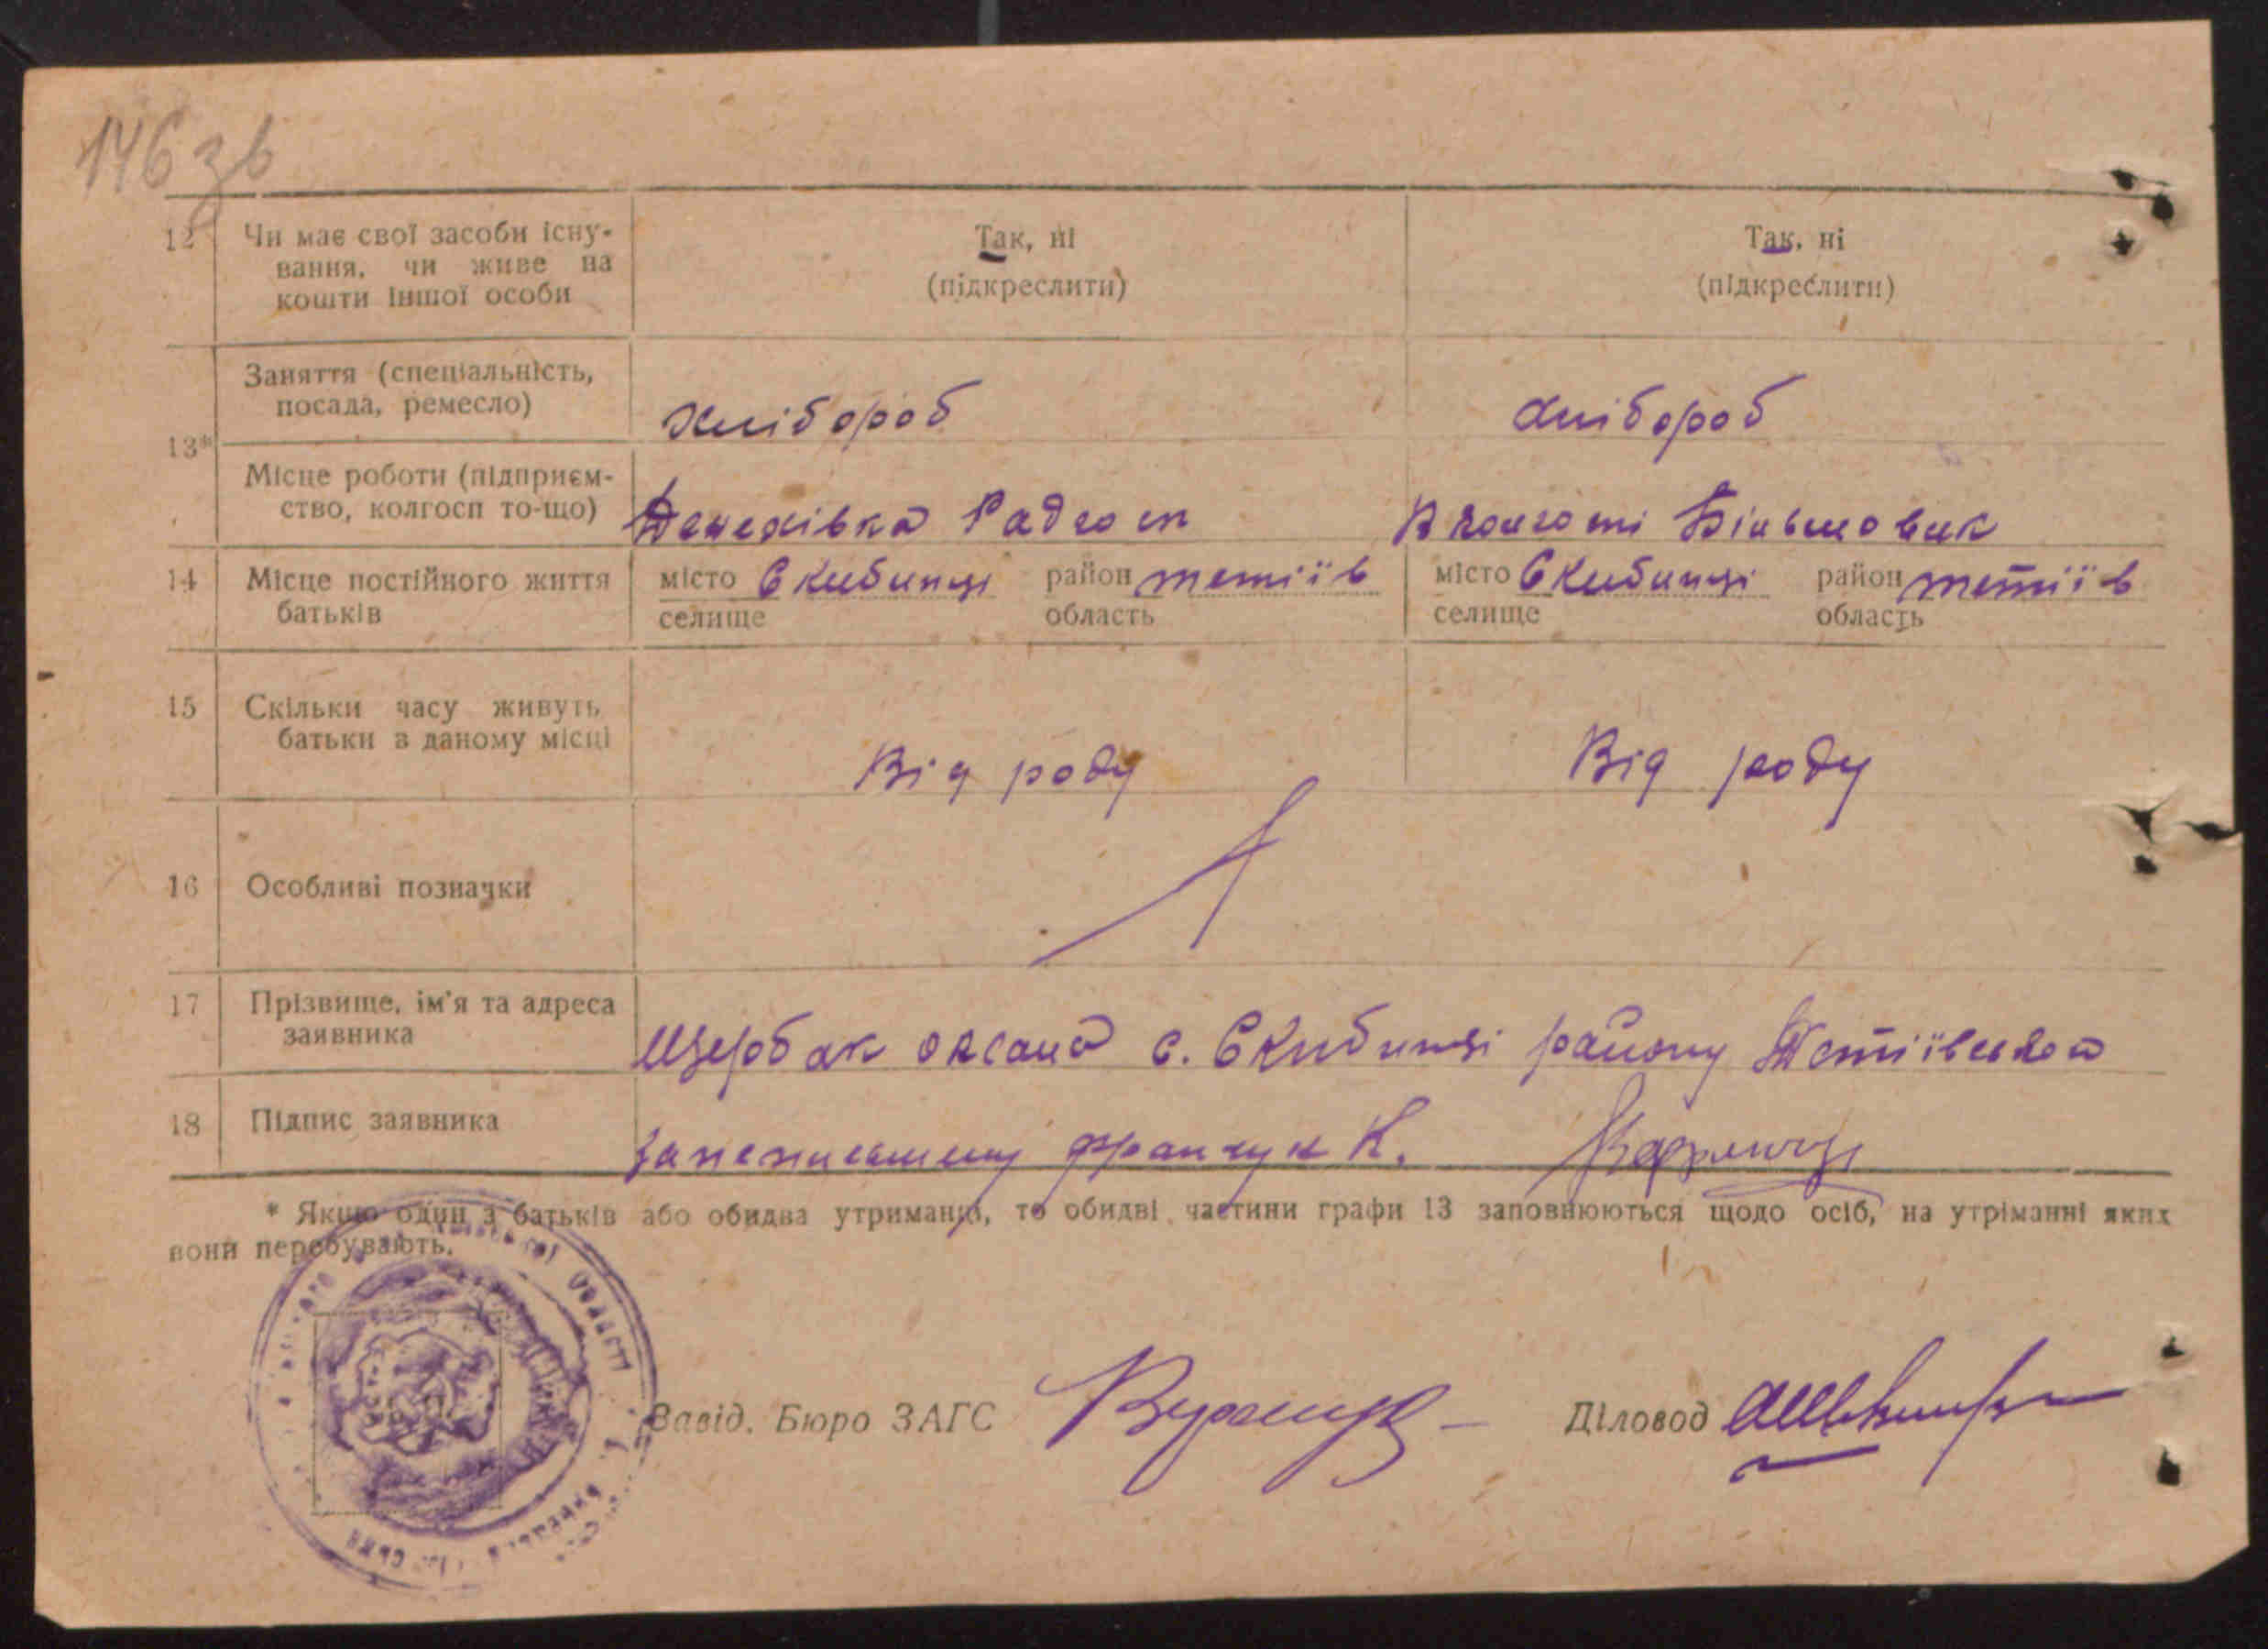 146 зв
12 Чи має свої засоби існу-
вання, чи живе на
кошти іншої особи
Так, ні
(підкреслити)
Так, ні
(підкреслити)
13*
Заняття (спеціальність,
посада, ремесло)
Хлібороб
Хлібороб
Місце роботи (підприєм-
ство, колгосп то-що)
Денехівка Радгосп
В колгоспі Більшовик
14 Місце постійного життя
батьків
місто Скибинці район Тетіїв
селище область
місто Скибинці район Тетіїв
селище область
15 Скільки часу живуть
батьки в даному місці
Від роду
Від роду
16 Особливі позначки
17 Прізвище, ім'я та адреса
заявника
Щербак Оксана с. Скибинці району Тетіївского
18 Підпис заявника
За неписьменну Францук К.
* Якщо один з батьків або обидва утриманці, то обидві частини графи 13 заповнюються щодо осіб, на утріманні яких
вони перебувають.
Завід. Бюро ЗАГС
Діловод